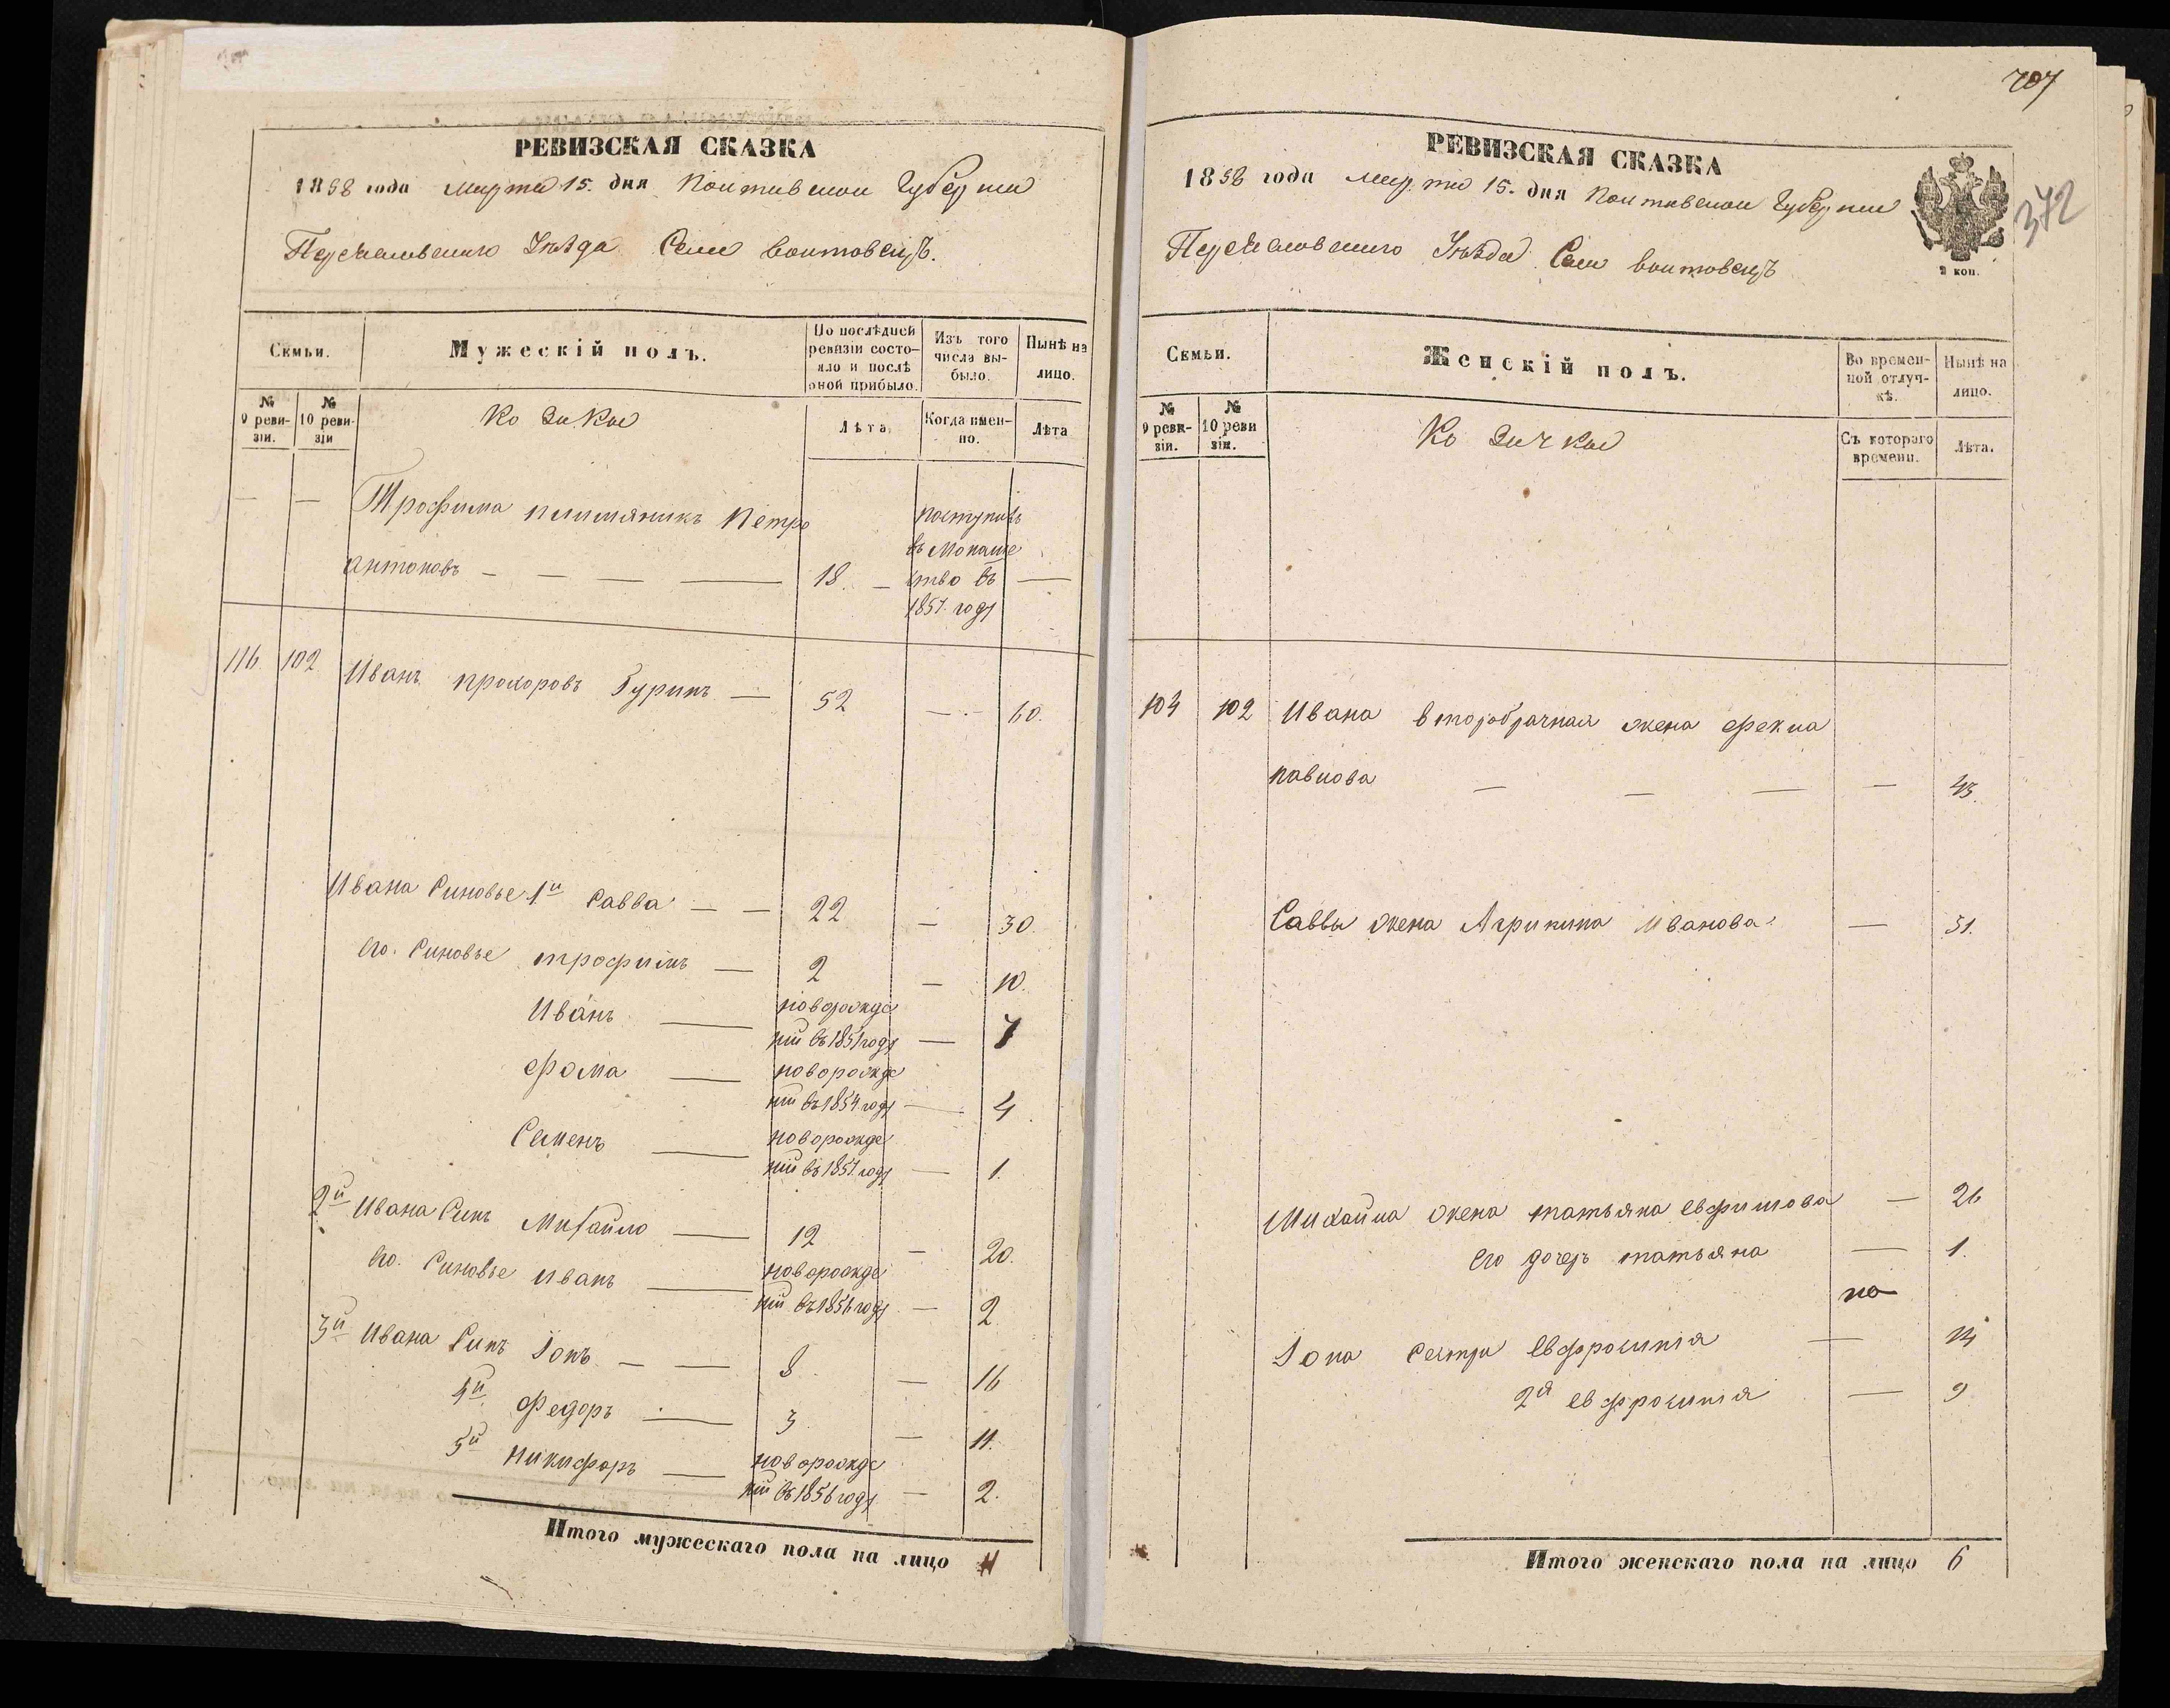 РЕВИЗСКАЯ СКАЗКА
1858 года Марта 15. дня Полтавской Губерніи
Переяславского Уѣзда Села Воитовецъ.
Семьи.
Мужескій полъ.
По послѣдней ревизіи состояло и послѣ оной прибыло.
Изъ того числа выбыло.
Нынѣ на лицо.
№ 9 ревизіи.
№ 10 ревизіи
Козаки
Лѣта.
Когда именно.
Лѣта
— — Трофима племяникъ Петро
антоновъ — — — — 18. — поступивъ въ Монаше ство въ 1857. году —
116 102 Иванъ прохоровъ Гуринъ — 52 — 60.
Ивана Синовье 1й Савва — — 22 — 30.
его. Синовье трофимъ — 2 — 10.
Иванъ — новорожде ній въ 1851 году — 7
Фома — новорожде ній въ 1854 году — 4
Семенъ — новорожде ній въ 1857. году — 1.
2й Ивана Синъ Михайло — 12 — 20.
его. Синовье иванъ — новорожде ній въ 1856 году — 2
3й Ивана Синъ Іонъ — — 8 — 16
4й Федоръ — 3 — 11.
5й Никифоръ — новорожде ній въ 1856 году — 2.
Итого мужескаго пола на лицо 11
707
РЕВИЗСКАЯ СКАЗКА
372
1858 года Марта 15. дня Полтавской Губерніи
Переяславского Уѣзда Села воитовецъ
2 коп.
Семьи.
Женскій полъ.
Во временной отлучкѣ.
Нынѣ на лицо.
№ 9 ревизіи.
№ 10 ревизіи.
Козачки
Съ котораго времени.
Лѣта.
104 102 Ивана второбрачная жена Фекла
павлова — — — — 43.
Саввы жена Агрипина Иванова — 31.
Михайла жена татьяна Евфимова — 26
его дочерь татьяна — 1.
по
Іона Сестра Евфросинія — 14
2я Евфросинія — 9
Итого женскаго пола на лицо 6